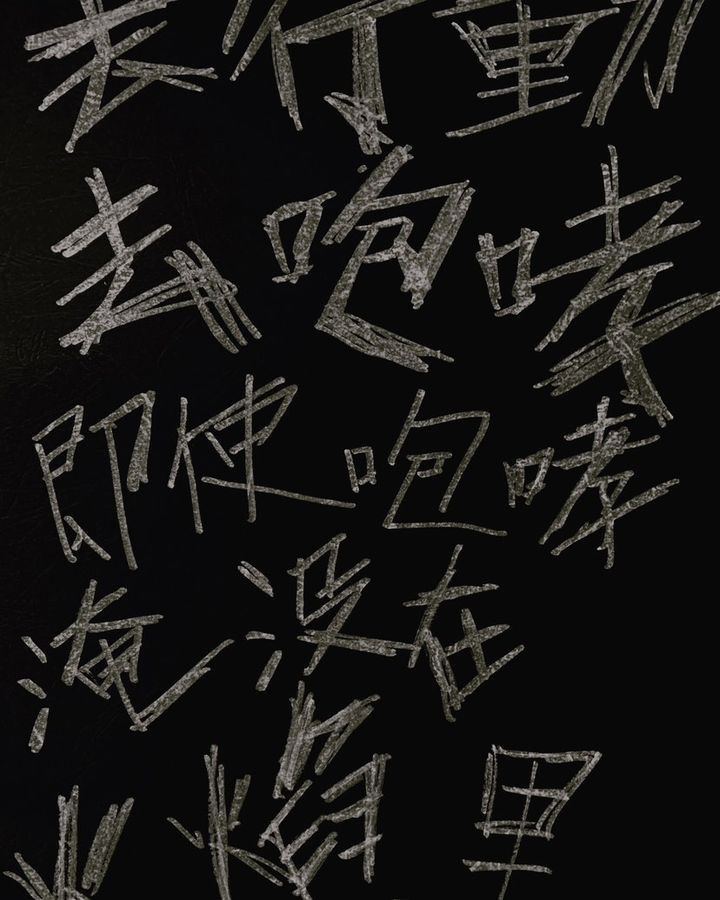 去行動
去咆哮
即使咆哮
淹沒在
火焰里